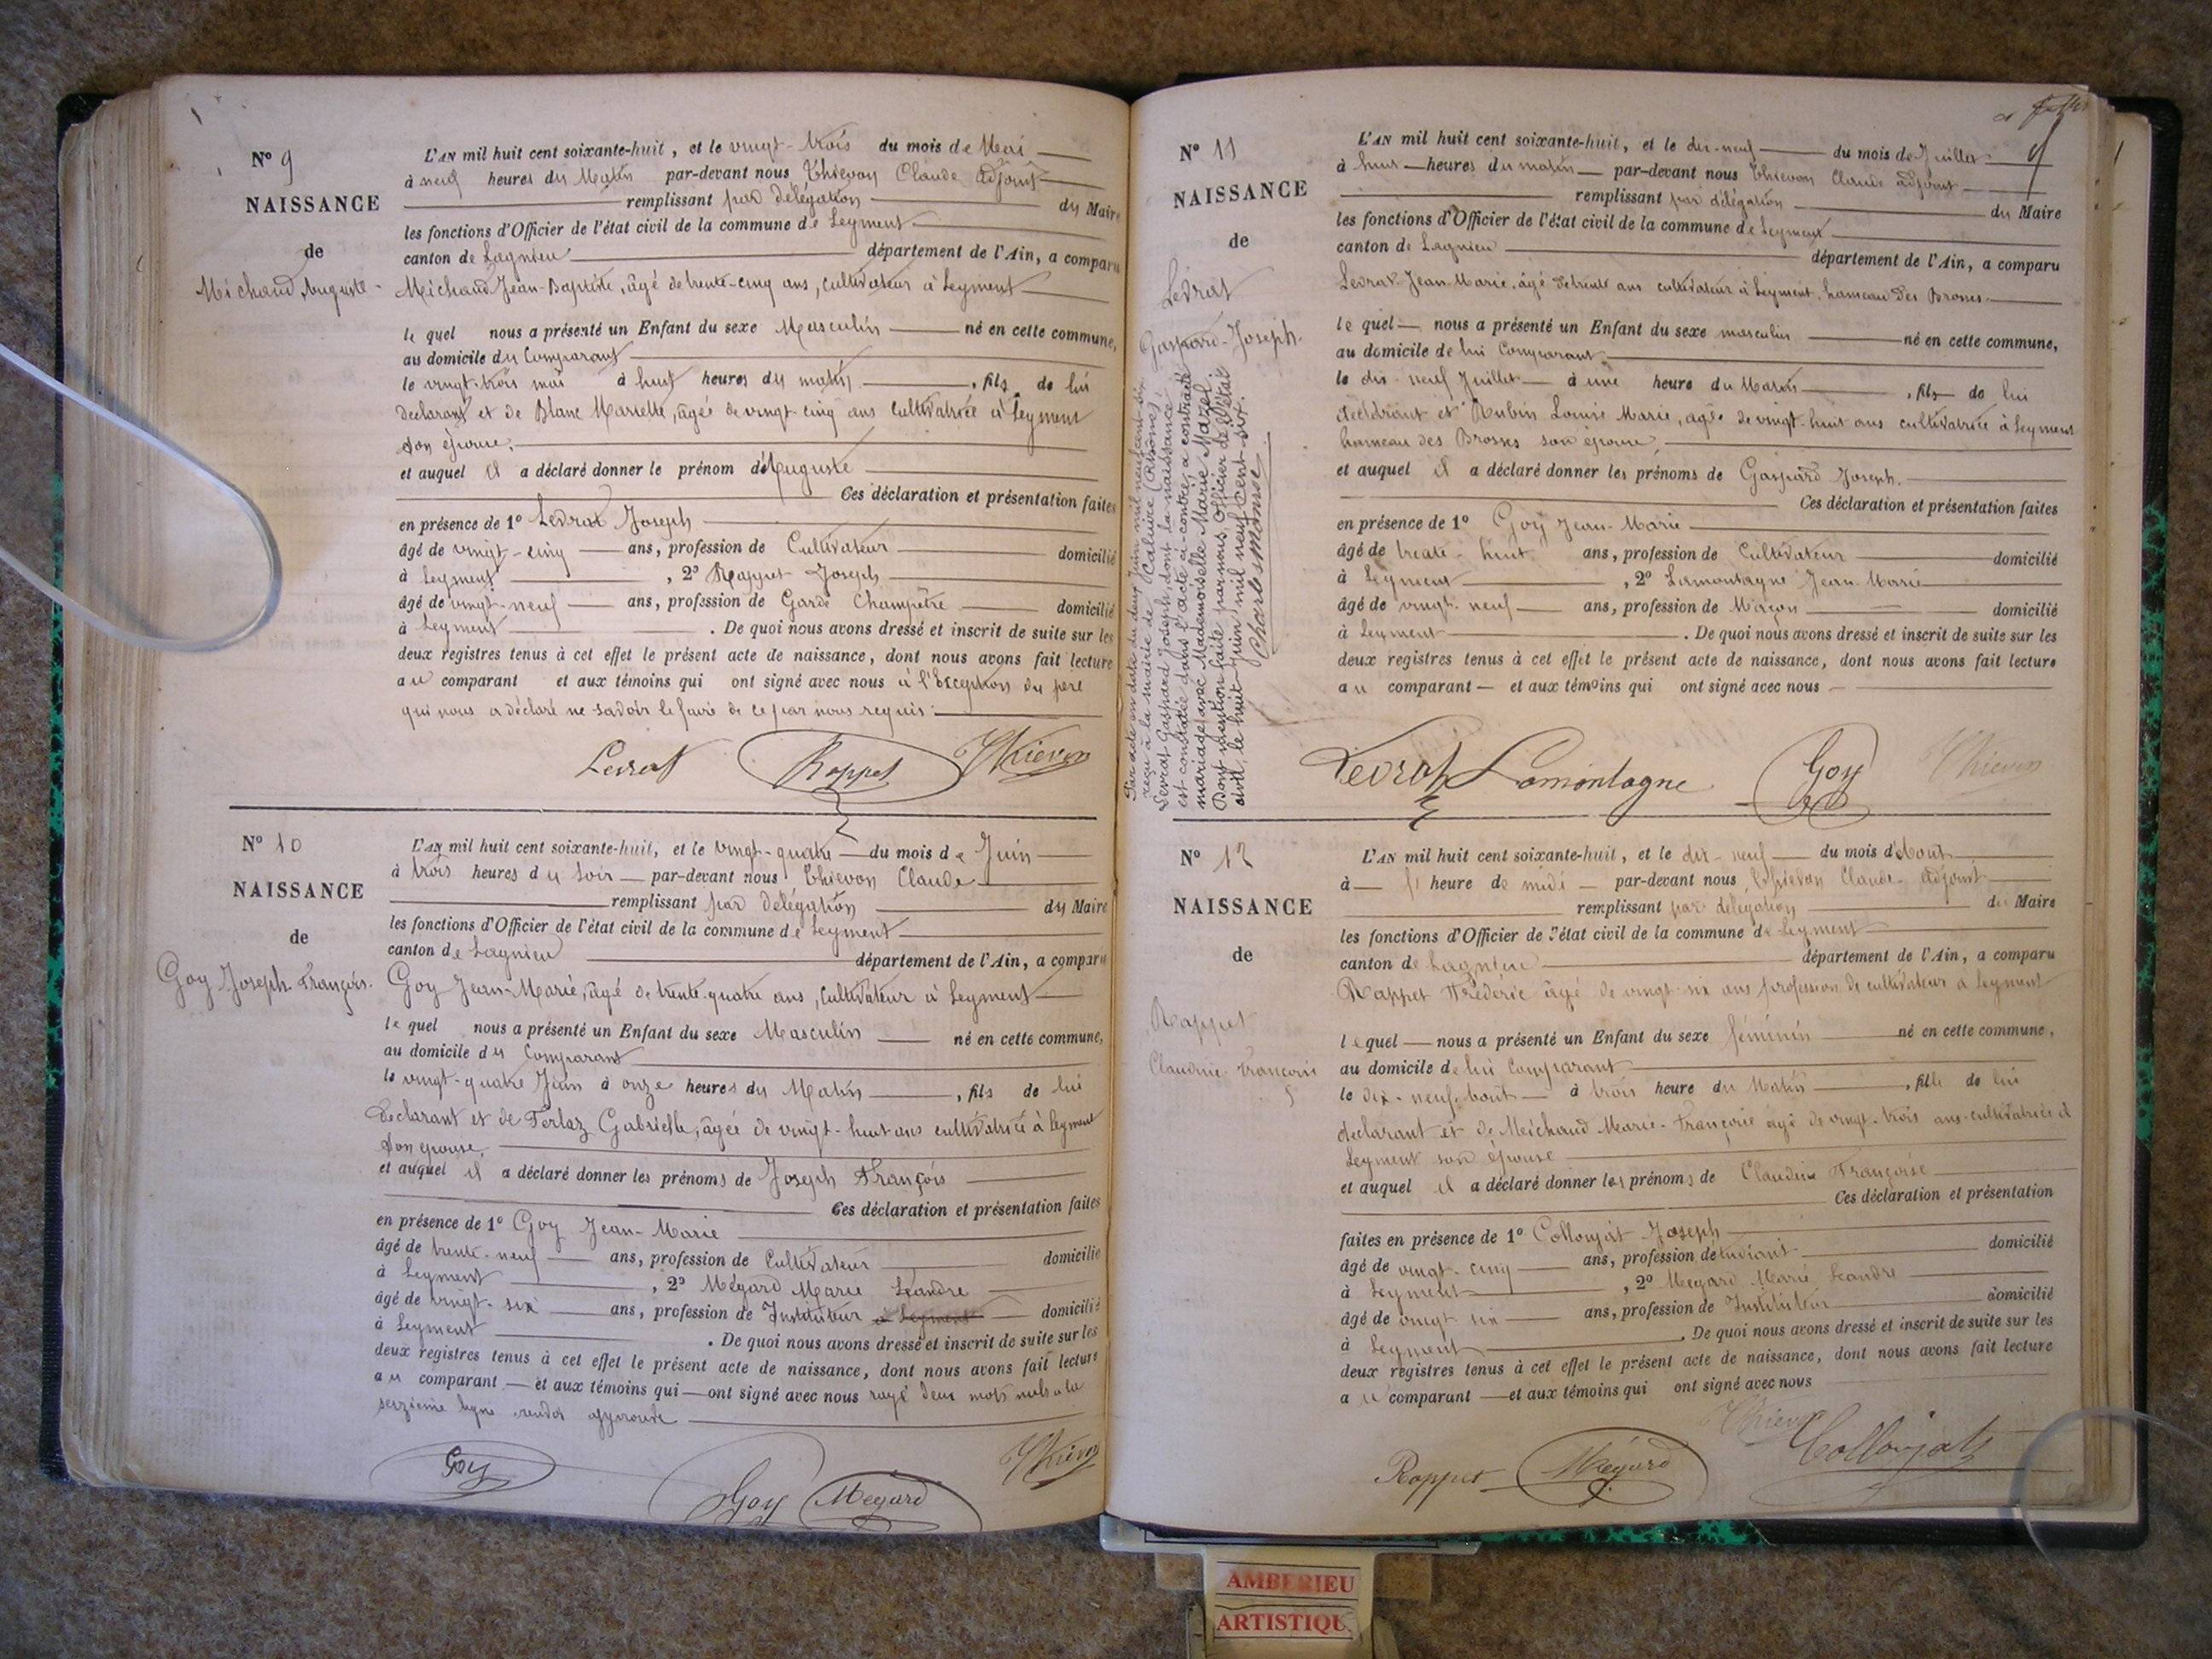 N° 9
NAISSANCE
de
Michaud Auguste
L'AN mil huit cent soixante-huit, et le vingt-trois du mois de Mai
à neuf heures du Matin par-devant nous Thievon Claude adjoint
remplissant par délégation du Maire
les fonctions d'Officier de l'état civil de la commune de Leyment
canton de Lagnieu département de l'Ain, a comparu
Michaud Jean-Baptiste, âgé de trente-cinq ans, cultivateur à Leyment
le quel nous a présenté un Enfant du sexe Masculin né en cette commune,
au domicile du Comparant
le vingt-trois mai à huit heures du matin, fils de lui
declarant et de Blanc Mariette, âgée de vingt cinq ans cultivatrice à Leyment
son épouse,
et auquel il a déclaré donner le prénom d'Auguste
Ces déclaration et présentation faites
en présence de 1° Levrat Joseph
âgé de vingt-cinq ans, profession de Cultivateur domicilié
à Leyment, 2° Rappet Joseph
âgé de vingt-neuf ans, profession de Garde Champêtre domicilié
à Leyment. De quoi nous avons dressé et inscrit de suite sur les
deux registres tenus à cet effet le présent acte de naissance, dont nous avons fait lecture
au comparant et aux témoins qui ont signé avec nous à l'Exception du père
qui nous a déclaré ne savoir le faire de ce par nous requis.
Levrat Rappet Thievon
N° 10
NAISSANCE
de
Goy Joseph François
L'AN mil huit cent soixante-huit, et le vingt-quatre du mois de Juin
à trois heures du soir par-devant nous Thievon Claude
remplissant par délégation du Maire
les fonctions d'Officier de l'état civil de la commune de Leyment
canton de Lagnieu département de l'Ain, a comparu
Goy Jean-Marie, âgé de trente-quatre ans, Cultivateur à Leyment
le quel nous a présenté un Enfant du sexe Masculin né en cette commune,
au domicile du Comparant
le vingt-quatre Juin à onze heures du Matin, fils de lui
declarant et de Ferlaz Gabrielle, âgée de vingt-huit ans cultivatrice à Leyment
son épouse,
et auquel il a déclaré donner les prénoms de Joseph François
Ces déclaration et présentation faites
en présence de 1° Goy Jean-Marie
âgé de trente-neuf ans, profession de Cultivateur domicilié
à Leyment, 2° Mégard Marie Léandre
âgé de vingt-six ans, profession de Instituteur à Leyment domicilié
à Leyment. De quoi nous avons dressé et inscrit de suite sur les
deux registres tenus à cet effet le présent acte de naissance, dont nous avons fait lecture
au comparant et aux témoins qui ont signé avec nous rayé deux mots nuls à la
seizième ligne
Goy Goy Megard Thievon
N° 11
NAISSANCE
de
Levrat
Gaspard-Joseph.
Par acte en date du deux Juin mil neuf cent six
reçu à la mairie de Caluire (Rhône),
Levrat Gaspard Joseph, dont la naissance
est constatée dans l'acte ci-contre, a contracté
mariage avec Mademoiselle Marie Mazel.
Dont mention faite par nous, Officier de l'état
civil, le huit Juin mil neuf cent six.
L'AN mil huit cent soixante-huit, et le dix-neuf du mois de Juillet
à huit heures du matin par-devant nous Thievon Claude adjoint
remplissant par délégation du Maire
les fonctions d'Officier de l'état civil de la commune de Leyment
canton de Lagnieu département de l'Ain, a comparu
Levrat Jean-Marie, âgé de trente ans cultivateur à Leyment, hameau des Brosses
le quel nous a présenté un Enfant du sexe masculin né en cette commune,
au domicile de lui Comparant
le dix-neuf Juillet à une heure du Matin, fils de lui
déclarant et Rubin Louise Marie, âgée de vingt-huit ans cultivatrice à Leyment
hameau des Brosses son épouse,
et auquel il a déclaré donner les prénoms de Gaspard Joseph.
Ces déclaration et présentation faites
en présence de 1° Goy Jean-Marie
âgé de trente-huit ans, profession de Cultivateur domicilié
à Leyment, 2° Lamontagne Jean-Marie
âgé de vingt-neuf ans, profession de Maçon domicilié
à Leyment. De quoi nous avons dressé et inscrit de suite sur les
deux registres tenus à cet effet le présent acte de naissance, dont nous avons fait lecture
au comparant et aux témoins qui ont signé avec nous
Levrat Lamontagne Goy Thievon
N° 12
NAISSANCE
de
Rappet
Claudine Françoise
L'AN mil huit cent soixante-huit, et le dix-neuf du mois d'Aout
à heure de midi par-devant nous Thievon Claude adjoint
remplissant par délégation du Maire
les fonctions d'Officier de l'état civil de la commune de Leyment
canton de Lagnieu département de l'Ain, a comparu
Rappet Fréderic âgé de vingt-six ans profession de cultivateur à Leyment
lequel nous a présenté un Enfant du sexe féminin né en cette commune,
au domicile de lui Comparant
le dix-neuf Aout à trois heure du Matin, fille de lui
declarant et de Michaud Marie-Françoise âgé de vingt-trois ans cultivatrice à
Leyment son épouse
et auquel il a déclaré donner les prénoms de Claudine Françoise
Ces déclaration et présentation
faites en présence de 1° Collonjat Joseph
âgé de vingt-cinq ans, profession d'etudiant domicilié
à Leyment, 2° Megard Marie Leandre
âgé de vingt six ans, profession de Instituteur domicilié
à Leyment. De quoi nous avons dressé et inscrit de suite sur les
deux registres tenus à cet effet le présent acte de naissance, dont nous avons fait lecture
au comparant et aux témoins qui ont signé avec nous
Thievon
Rappet Mégard Collonjat
AMBERIEU
ARTISTIQU